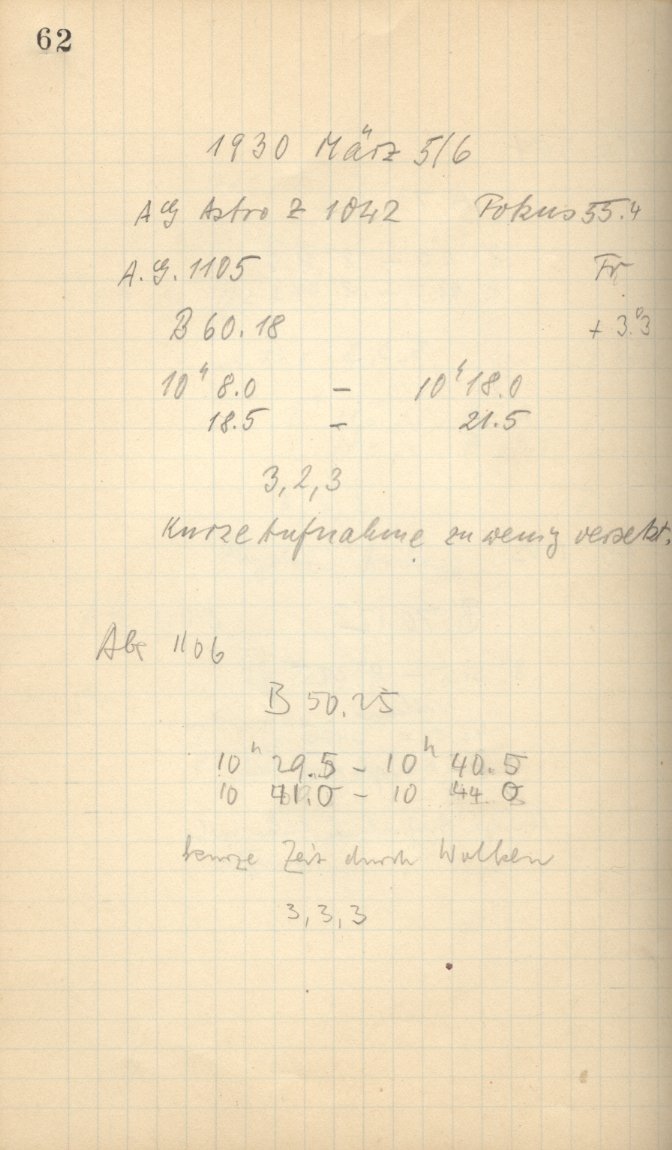 62
1930 März 5/6
AG Astro Z 1042 Fokus 55.4
A.G. 1105 Fr
B 60.18 + 3.°3
10ʰ 8.0 – 10ʰ 18.0
18.5 – 21.5
3, 2, 3
Kurze Aufnahme zu wenig versetzt.
1106
B 50.25
10ʰ 29.5 – 10ʰ 40.5
10 41.0 – 10 44.0
kurze Zeit durch Wolken
3, 3, 3